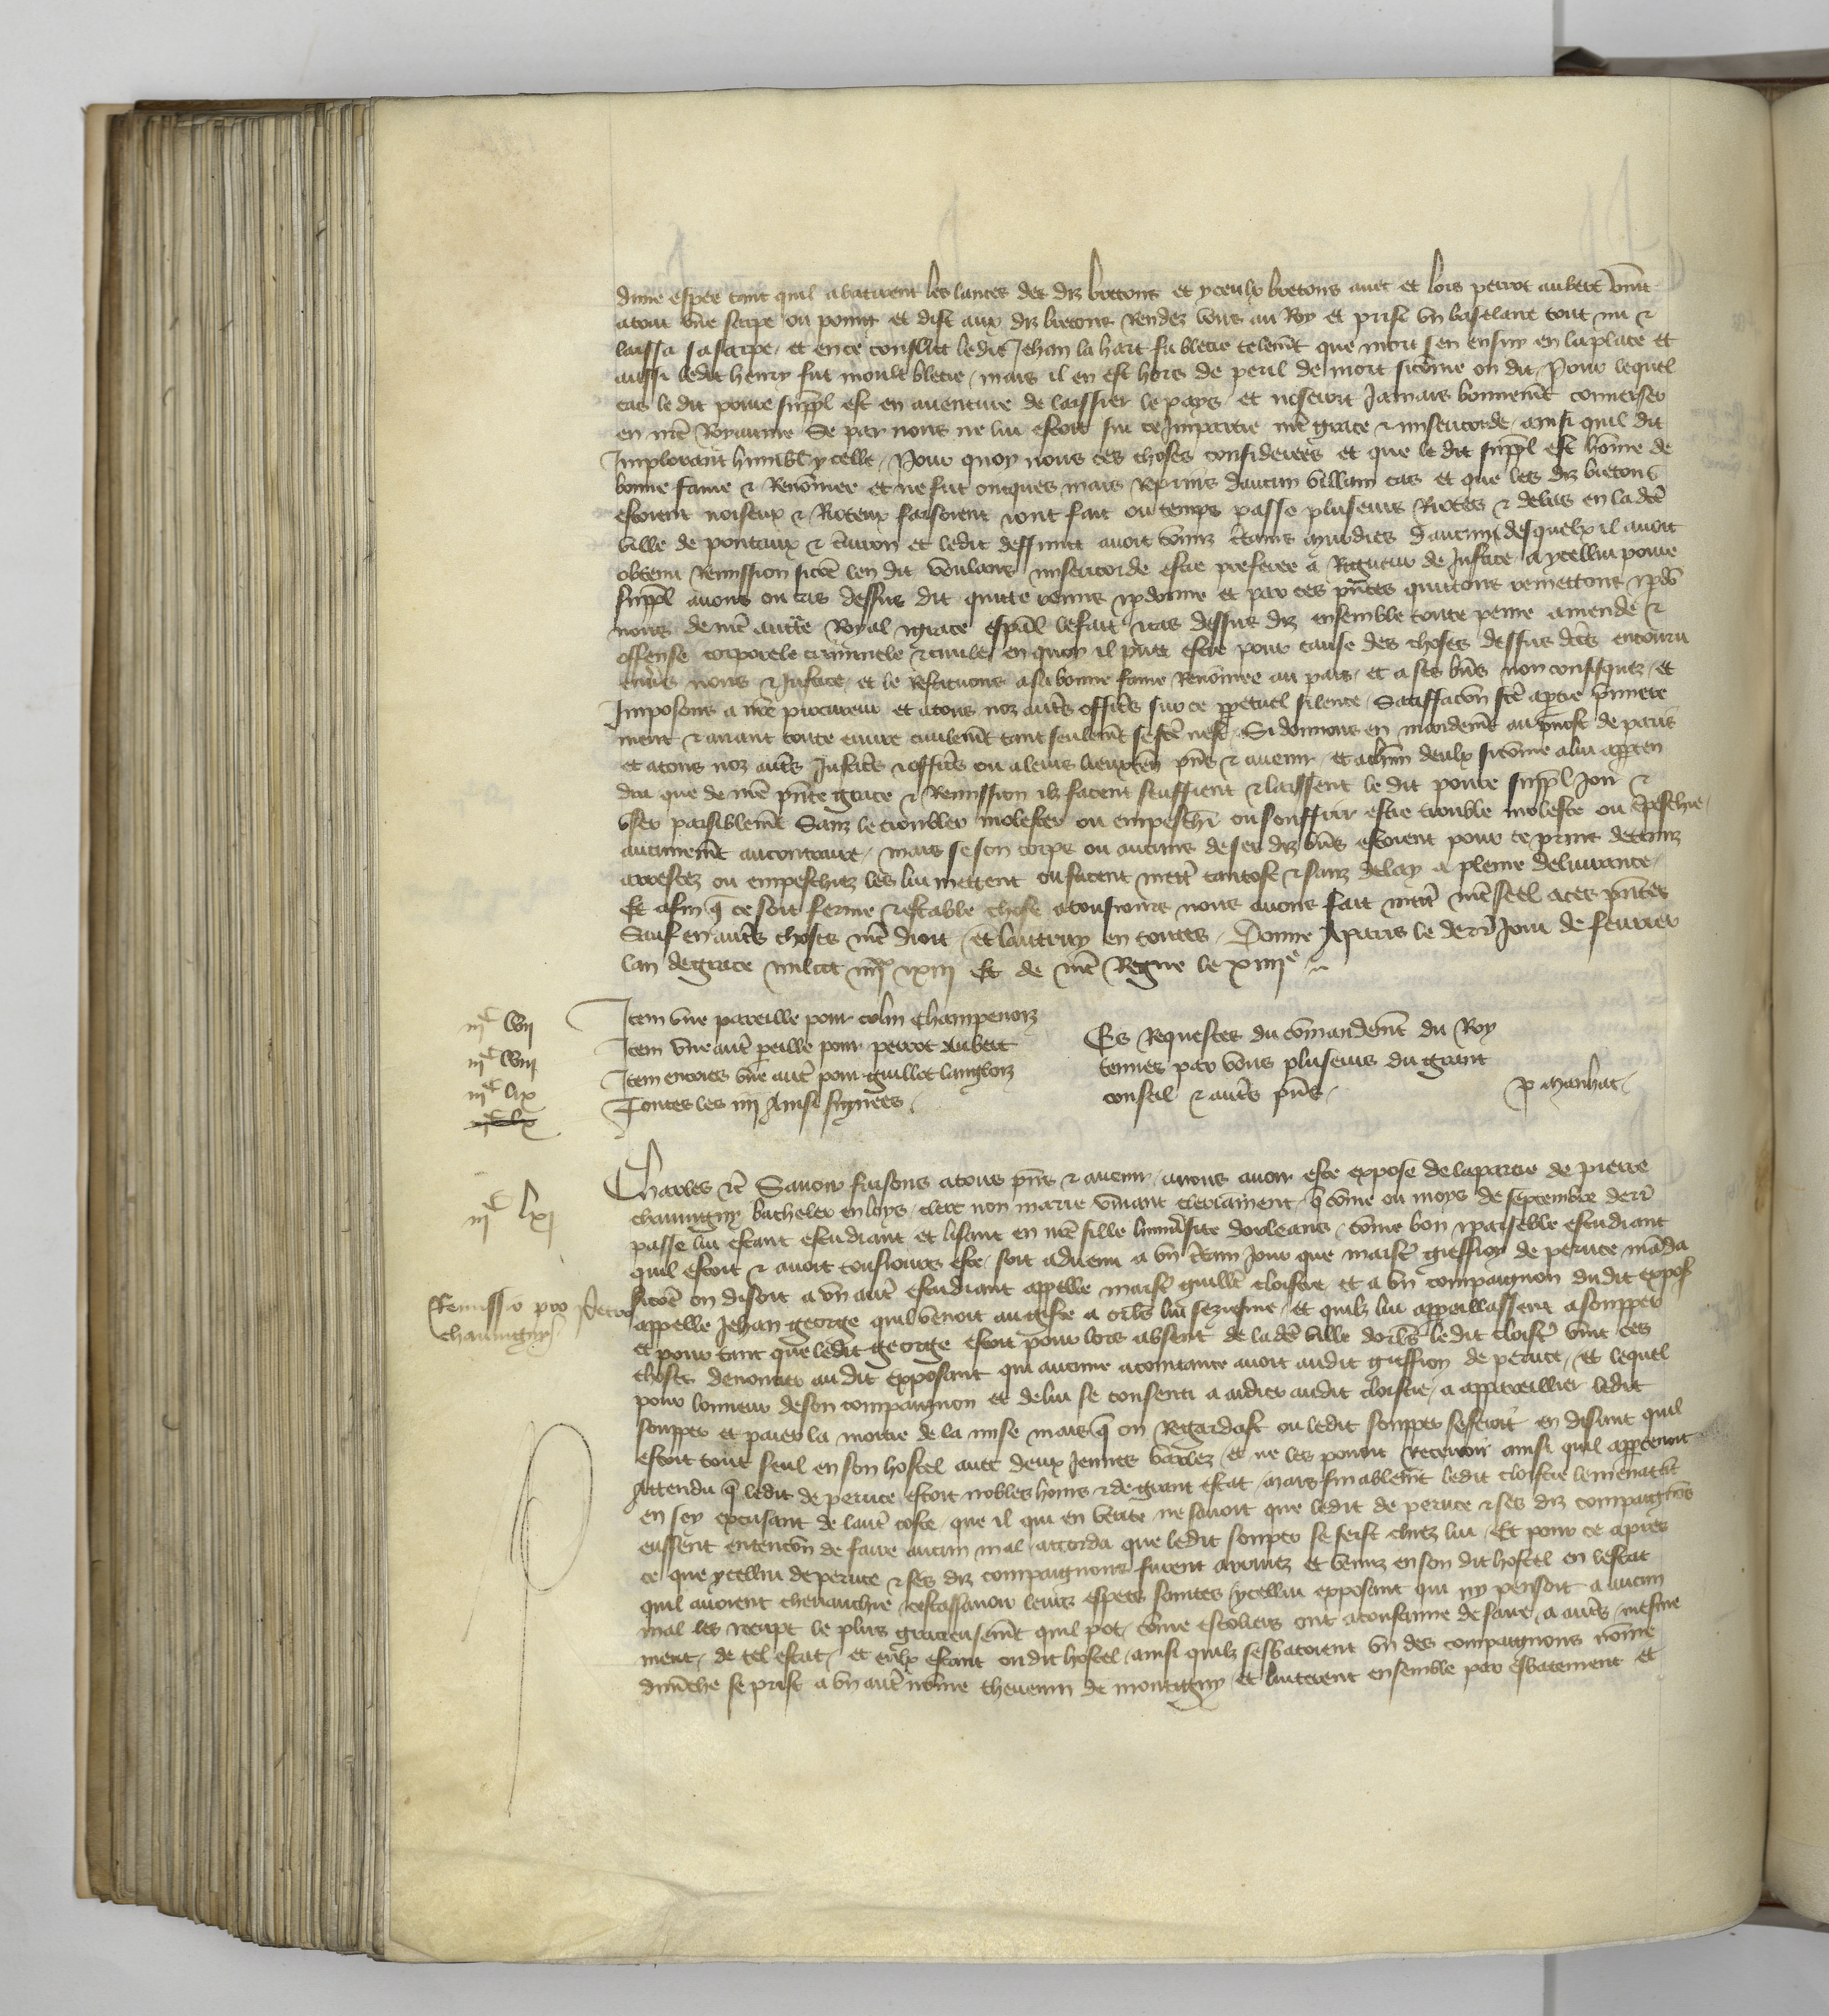 dune espee tant quil abatirent les lances des diz bretons et yceulx bretons avec et lors perrot aubert vint
atout vne sarpe ou poing et dist aux diz bretons Rendez vous au Roy et prist vn baselaire tout nu et
laissa sa sarpe et en ce conflict ledit Jehan la hart fu blecie telemt que mort sen ensuy en la place et
aussi ledit henry fut moult blecie mais il en est hors de peril de mort sicome on dit Pour lequel
cas le dit poure suppl est en auenture de laissier le pays et noseroit Jamais bonnemt conuerser
en nre Royaume Se par nous ne lui estoit sur ce Impartie nre grace et misericorde ainsi quil dit
Implorant humblt ycelle Pour quoy nous ces choses considerees et que le dit suppl est home de
bonne fame et Renomee et ne fut oncques mais Reprins daucun villain cas et que les diz bretons
estoient noiseux et Rioteux faisoient et ont fait ou temps passe plusieurs Riotes et debas en la dce
ville de et enuiron et ledit deffunct auoit desquelx il auoit
obtenu Remission sicoe len dit voulans misericorde estre preferee a Rigueur de Justice a ycellui poure
suppl auons ou cas dessus dit quitte remis et pdonne et par ces pntes quittons remettons et pdo
nons de nre aucte Royal et grace espal le fait et cas dessus diz ensemble toute peine amende et
offense corporele criminele et ciuile en quoy il puet estre pour cause des choses dessus dces encouru
enuers nous et Justice et le Restituons a sa bonne fame Renomee au pais et a ses bns non confisquez et
Imposons a nre procureur et a tous noz autes officrs sur ce ppetuel silence Satisfacon fce a ptie premiere
ment et auant toute euure ciuilemt tant seulemt se fce nest Si donnons en mandemt au preuost de paris
et a tous noz autes Justicrs et officrs ou a leurs lieuxten pns et auenir et a chun deulx sicome a lui apparten
dra que de nre pnte grace et Remission ilz facent seuffrent et laissent le dit poure suppl Joir et
vser paisiblemt Sanz le troubler molester ou empeschr ou souffrir estre trouble moleste ou empeschie
aucunemt au contraire mais se son corps ou aucuns de ses diz bns estoient pour ce prins detenuz
arrestez ou empeschiez les lui mettent ou facent mettr tantost et sanz delay a pleine deliurance
Et afin q ce soit ferme et estable chose a tousiours nous auons fait mettr nre seel a ces pntes
Sauf en autes choses nre droit et lautruy en toutes Donne A paris le derr Jour de feurier
lan de grace mil ccc iiijxx et xiij Et de nre Regne le xiiije
iijc lvij
iijc lviij
iijc lix
iijc lx
Item vne pareille pour colin champenoiz
Item vne autr peille pour perrot Aubert
Item encores vne autr pour guillot langloiz
Toutes les iiij Ainsi signees
Es Requestes du comandemt du Roy
tenues par vous plusieurs du grant
conseil et autrs pns
P Manhac
iijc lxj
Remissio pro Petro
chauuigny
Charles etc Sauoir faisons a tous pns et auenir a nous auoir este expose de la partie de pierre
chauuigny bacheler en loys clerc non marie viuant clericament q come ou moys de septembre derr
passe lui estant estudiant et lisant en nre fille luniusite dorleans come bon et paisieble estudiant
quil estoit et auoit tousiours este soit aduenu a vn crtain Jour que maistr gieffroy de peruce manda
sicoe on disoit a vn autr estudiant appelle maistr guille cloistre et a vn compaignon dudit expos
appelle Jehan george quil venoit au giste a orlns lui seziesme et quilz lui appareillassent a soupper
et pour tant que ledit george estoit pour lors absent de la de ville dorlns le dit cloistr vint ces
choses denoncier au dit exposant qui aucune acointance auoit audit gieffroy de peruce Et lequel
pour lonneur de son compaignon et de lui se consenti a aidier audit cloistre a appareillier ledit
soupper et paier la moitie de la mise mais q on Regardast ou ledit soupper se feroit en disant quil
estoit tout seul en son hostel auec deux Jeunes varlez et ne les pouoit Receuoir ainsi quil apptenoit
Attendu q ledit de peruce estoit nobles homs et de grant estat mais finablemt ledit cloistre
en soy excusant de lautr coste que il qui en verite ne sauoit que ledit de peruce et ses diz compaignons
eussent entencon de faire aucun mal accorda que ledit souper se feist chiez lui Et pour ce apres
ce que ycellui de peruce et ses diz compaignons furent arriuez et venuz en son dit hostel en lestat
quil auoient cheuauchie cestassauoir leurs espees saintes ycellui exposant qui ny pensoit a aucun
mal les receupt le plus gracieusemt quil pot come escoliers ont acoustume de faire a autrs mesme
ment de tel estat et eulx estant ou dit hostel ainsi quilz sesbatoient vn des compaignons nome
dimenche se prist a vn autr nome theuenin de montigny et luiterent ensemble par esbatement et